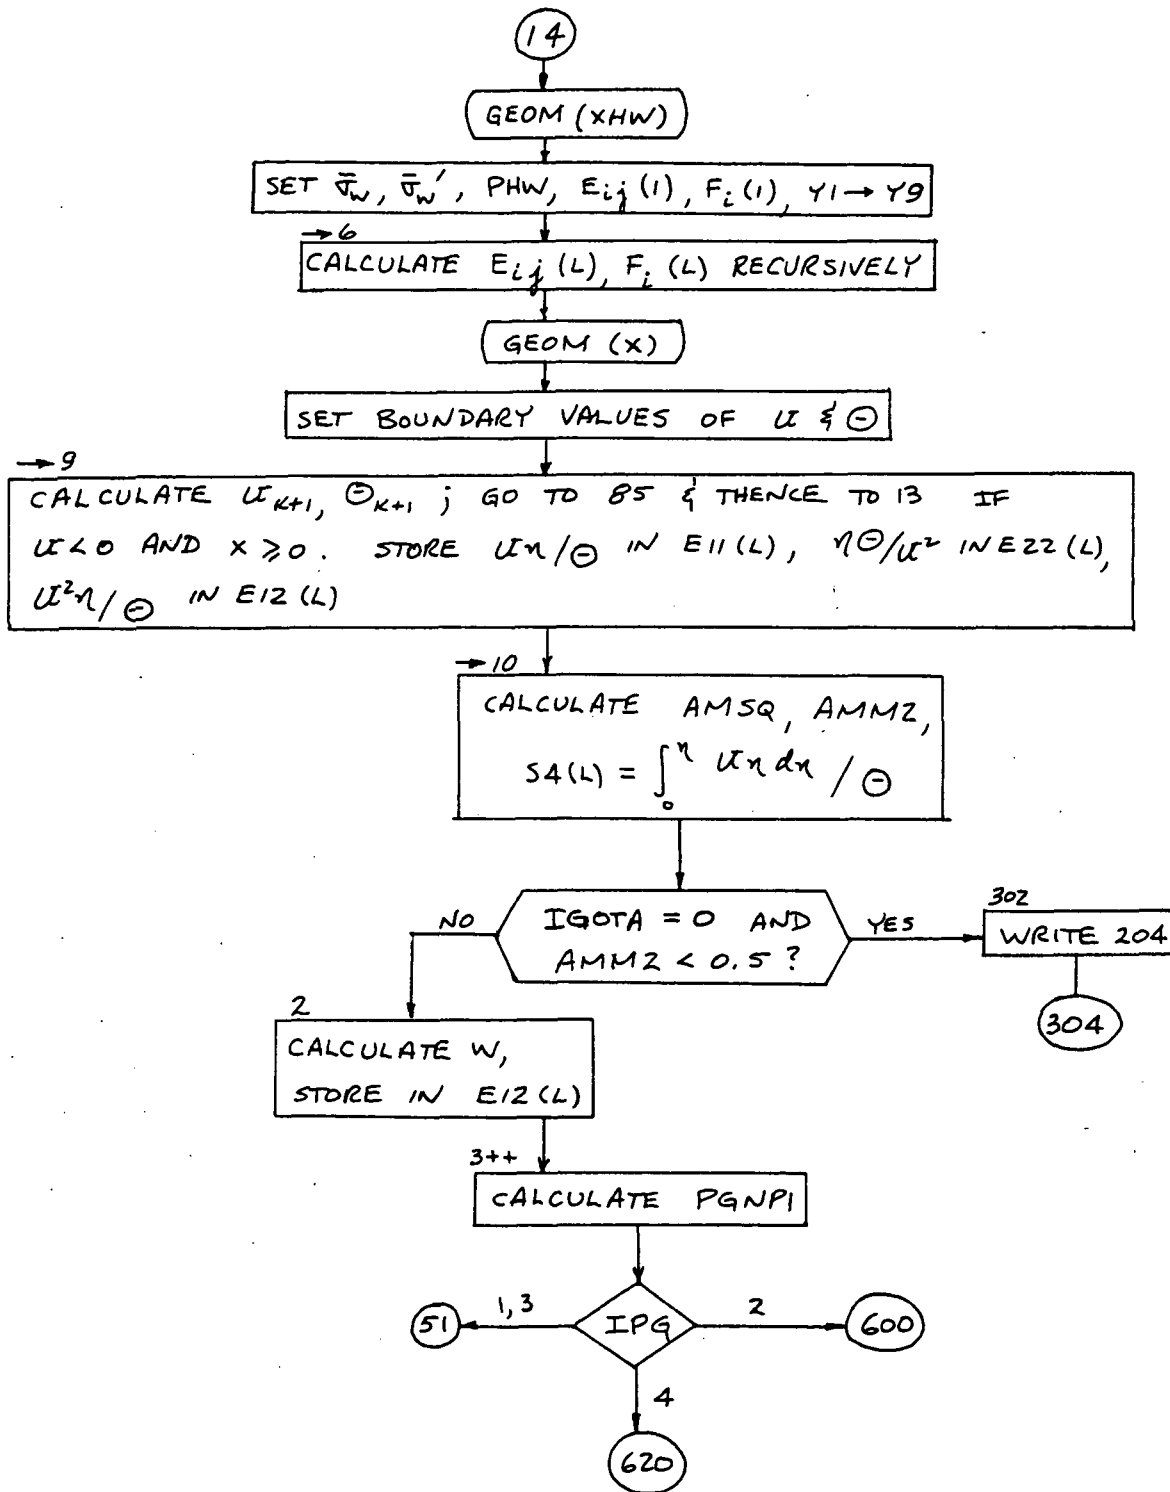 14
GEOM (XHW)
SET σ̄w, σ̄w′, PHW, Eij(1), Fi(1), Y1→Y9
→6
CALCULATE Eij(L), Fi(L) RECURSIVELY
GEOM (X)
SET BOUNDARY VALUES OF U & Θ
→9
CALCULATE UK+1, ΘK+1; GO TO 85 & THENCE TO 13 IF
U<0 AND X≥0. STORE Uη/Θ IN E11(L), ηΘ/U² IN E22(L),
U²η/Θ IN E12(L)
→10
CALCULATE AMSQ, AMM2,
S4(L) = ∫₀^η Uη dη / Θ
IGOTA = 0 AND
AMM2 < 0.5?
NO
YES
302
WRITE 204
304
2
CALCULATE W,
STORE IN E12(L)
3++
CALCULATE PGNP1
IPG
1, 3
51
2
600
4
620